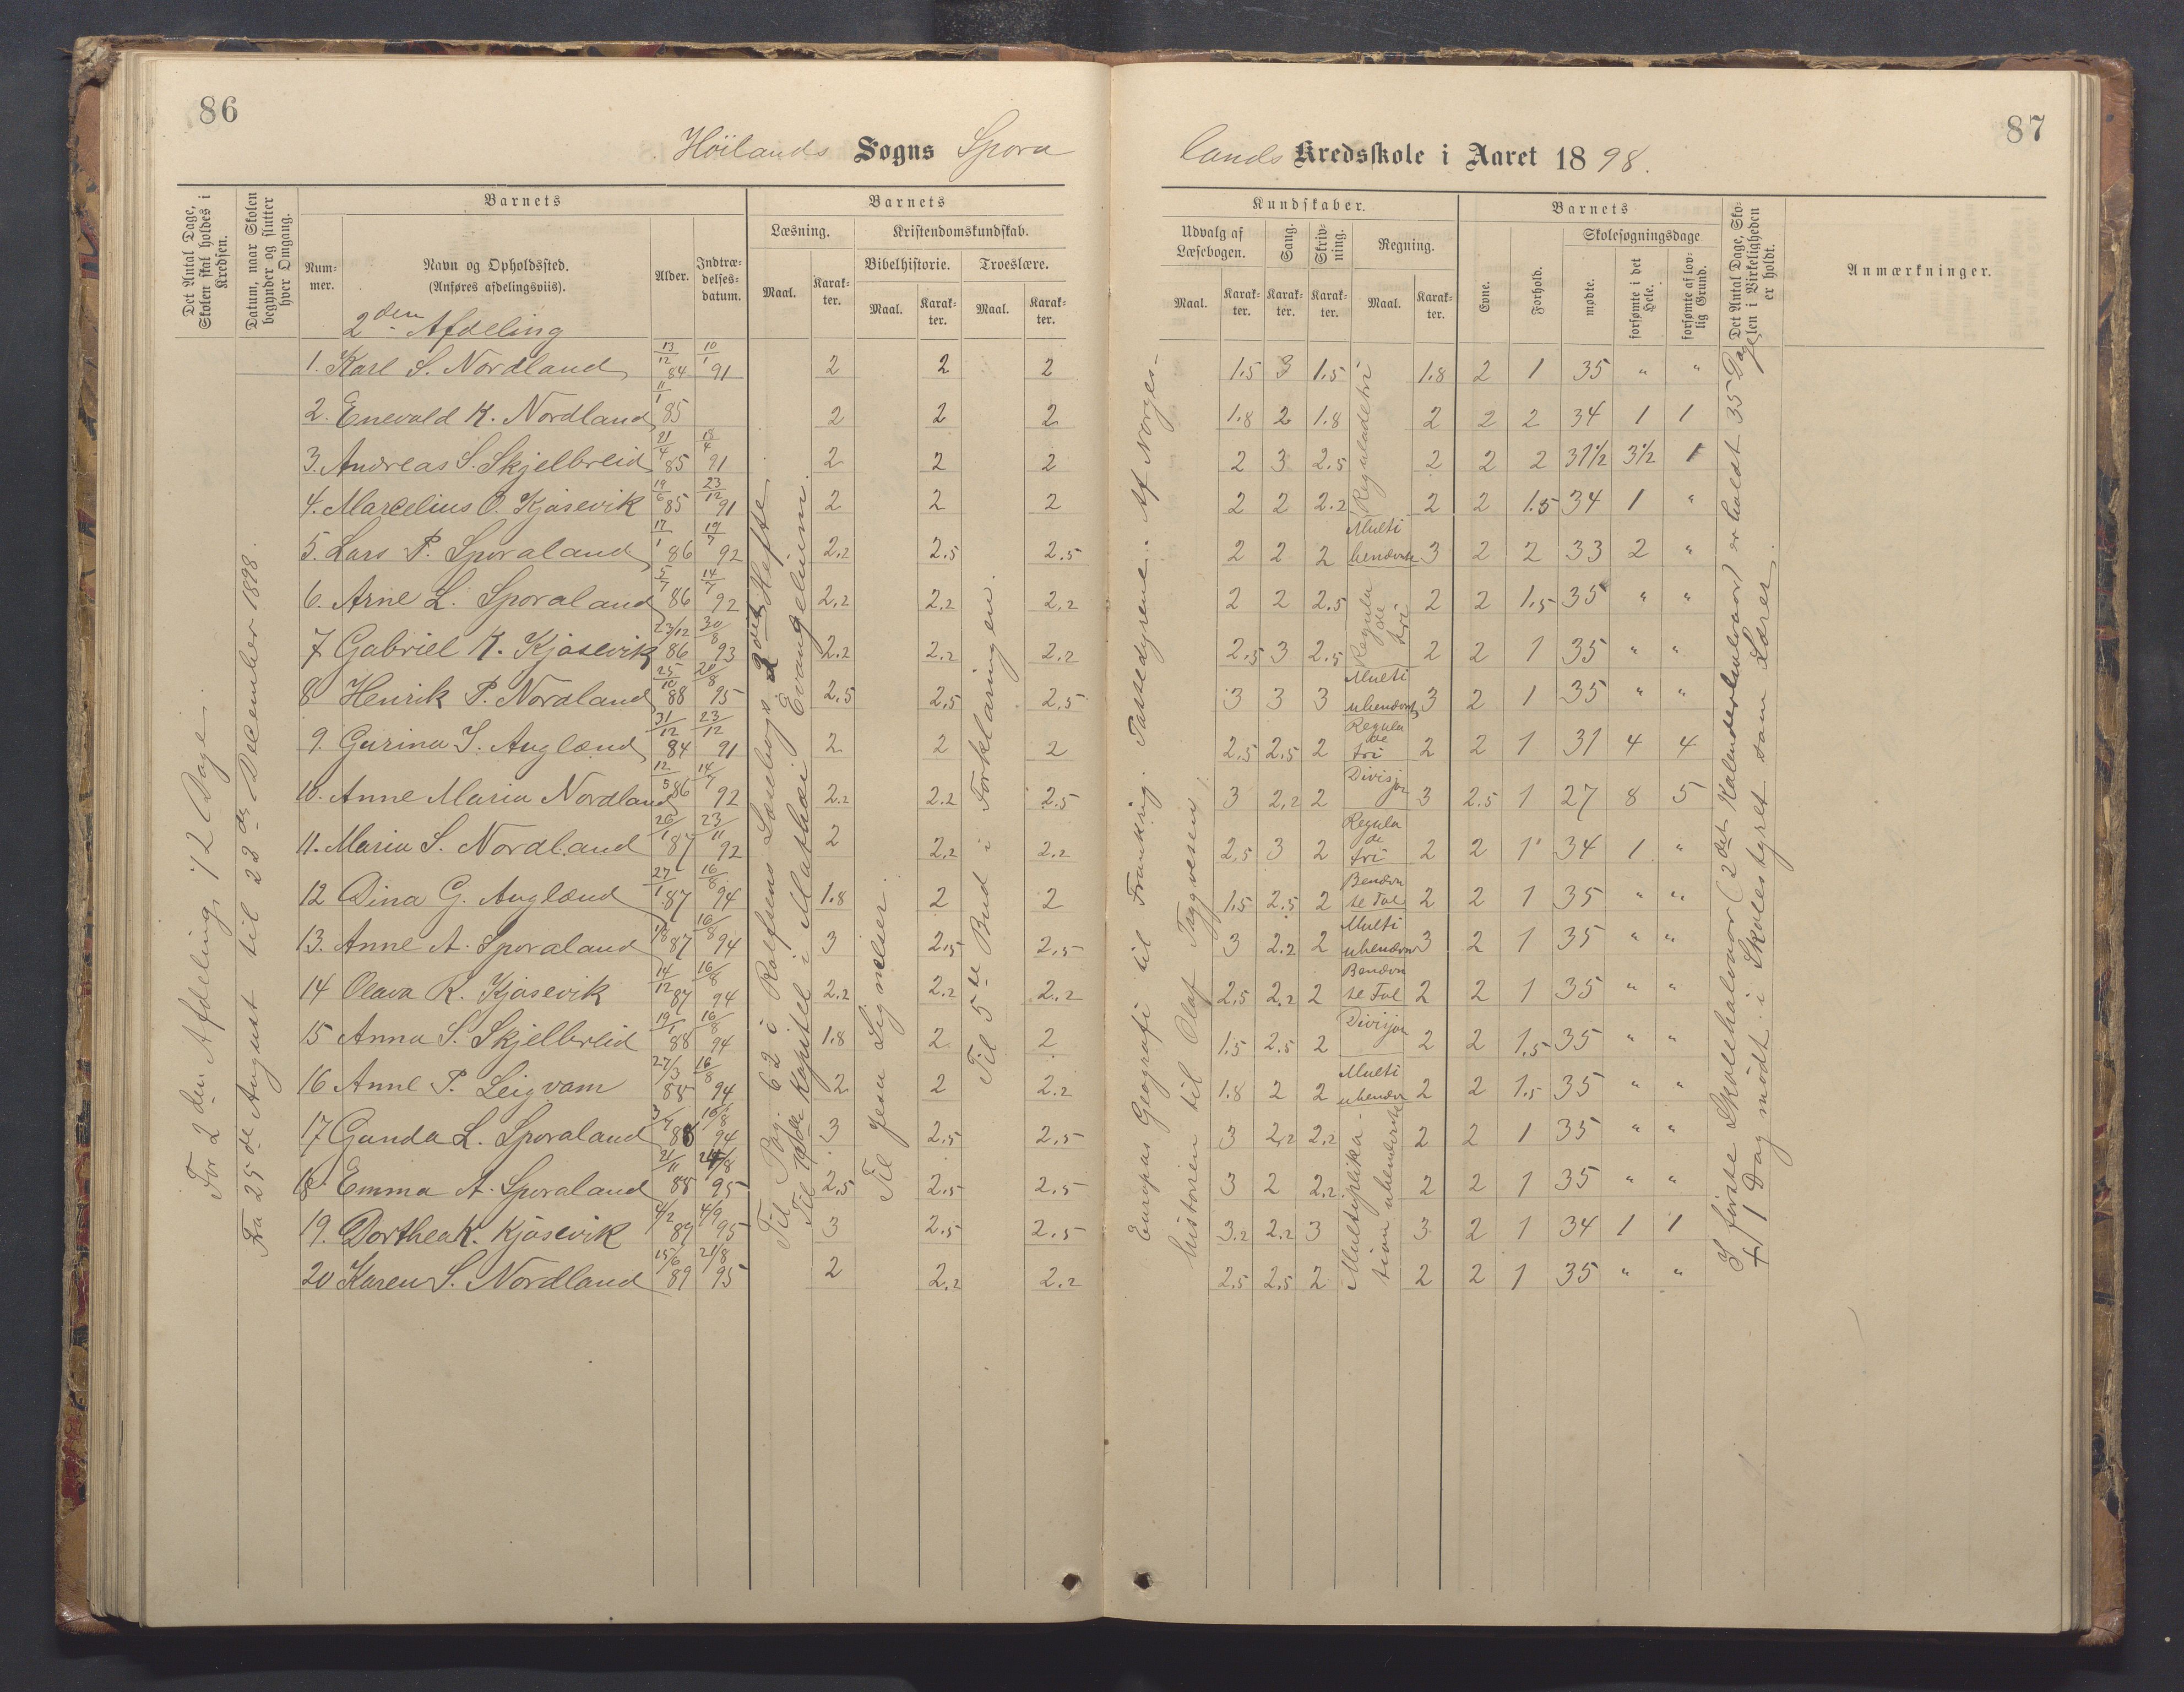 86
Höilands Sogns Spora
Det Antal Dage, Skolen skal holdes i Kredsen.
Datum, naar Skolen begynder og slutter hver Omgang.
Barnets
Num-
mer.
Navn og Opholdssted.
(Anføres afdelingsviis).
Alder.
Indtræ-
delses-
datum.
Barnets
Læsning.
Kristendomskundskab.
Bibelhistorie. Troeslære.
Maal. Karak-
ter.
Maal. Karak-
ter.
Maal. Karak-
ter.
2den Afdeling
For 2den Afdeling, 72 Dage.
Fra 25de August til 22de December 1898.
Til Pag. 62 i Rolfsens Læsebogs 2det Hefte
Til Kapitel i Mathæi Evangelium.
Til Jesu Lignelser.
Til 5te Bud i Forklaringen.
1. Karl S. Nordland 13/12 84 10/1 91 2 2 2
2. Enevald K. Nordland 11/1 85 2 2 2
3. Andreas S. Skjelbreid 21/4 85 18/4 91 2 2 2
4. Marcelius O. Kjosevik 19/6 85 23/12 91 2 2 2
5. Lars P. Sporaland 17/1 86 19/7 92 2.2 2.5 2.5
6. Arne L. Sporaland 5/7 86 14/7 92 2.2 2.2 2.2
7 Gabriel K. Kjosevik 23/12 86 30/8 93 2.2 2.2 2.2
8 Henrik P. Nordland 25/10 88 20/8 95 2.5 2.5 2.5
9. Gurina T. Auglænd 31/12 84 23/12 91 2 2 2
10. Anne Maria Nordland 12/5 86 14/7 92 2.2 2.2 2.5
11. Maria S. Nordland 26/1 87 23/11 92 2 2.2 2.2
12 Dina G. Auglænd 27/1 87 16/8 94 1.8 2 2
13. Anne A. Sporaland 1/8 87 16/8 94 3 2.5 2.5
14 Olava K. Kjosevik 14/12 87 16/8 94 2.2 2.2 2.2
15 Anna S. Skjelbreid 19/1 88 16/8 94 1.8 2 2
16 Anne P. Leigvam 27/3 88 16/8 94 2 2 2.2
17 Gunda L. Sporaland 88 16/8 94 3 2.5 2.5
18 Emma A. Sporaland 21/11 88 95 2.5 2.5 2.5
19. Dorthea K. Kjosevik 4/2 89 4/9 95 3 2.5 2.5
20 Karen S. Nordland 15/6 89 21/8 95 2 2.2 2.2
87
lands Kredsskole i Aaret 1898.
Kundskaber.
Udvalg af
Læsebogen.
Sang.
Skriv-
ning.
Regning.
Maal. Karak-
ter.
Karak-
ter.
Karak-
ter.
Maal. Karak-
ter.
Barnets
Evne.
Forhold.
Skolesøgningsdage
mødte.
forsømte i det Hele.
forsømte af lov-
lig Grund.
Det Antal Dage, Sko-
len i Virkeligheden er holdt.
Anmærkninger.
Europas Geografi til Frankrig. Pattedyrene. Af Norges-
historien til Olaf Tryggvesen.
I første Skolehalvaar (2det Kalenderhalvaar) er holdt 35 Dage
+ 1 Dag mødt i Skolestyret som Lærer.
1.5 3 1.5 Reguladetri 1.8 2 1 35 " "
1.8 2 1.8 2 2 2 34 1 1
2 3 2.5 2 2 2 31 1/2 3 1/2 1
2 2 2.2 2 2 1.5 34 1 "
2 2 2 Multi benævnte 3 2 2 33 2 "
2 2 2.5 Regula de tri 2 2 1.5 35 " "
2.5 3 2.5 2 2 1 35 " "
3 3 3 Multi ubenævnt 3 2 1 35 " "
2.5 2.5 2 Regula de tri 2 2 1 31 4 4
3 2.2 2 Divisjon 3 2.5 1 27 8 5
2.5 3 2 Regula de tri 2 2 1 34 1 "
1.5 2.5 2 Benævnte Tal 2 2 1 35 " "
3 2.2 2 Multi ubenævn 3 2 1 35 " "
2.5 2.2 2 Benævnte Tal 2 2 1 35 " "
1.5 2.5 2 Divisjon 2 2 1.5 35 " "
1.8 2 2 Multi ubenævn 2 2 1.5 35 " "
3 2.2 2.2 Multiplika-
tion ubenævnte 2 2 1 35 " "
3 2 2.2 2 2 1 35 " "
3.2 2.2 3 3 2 1 34 1 1
2.5 2.5 2 2 2 1 35 " "